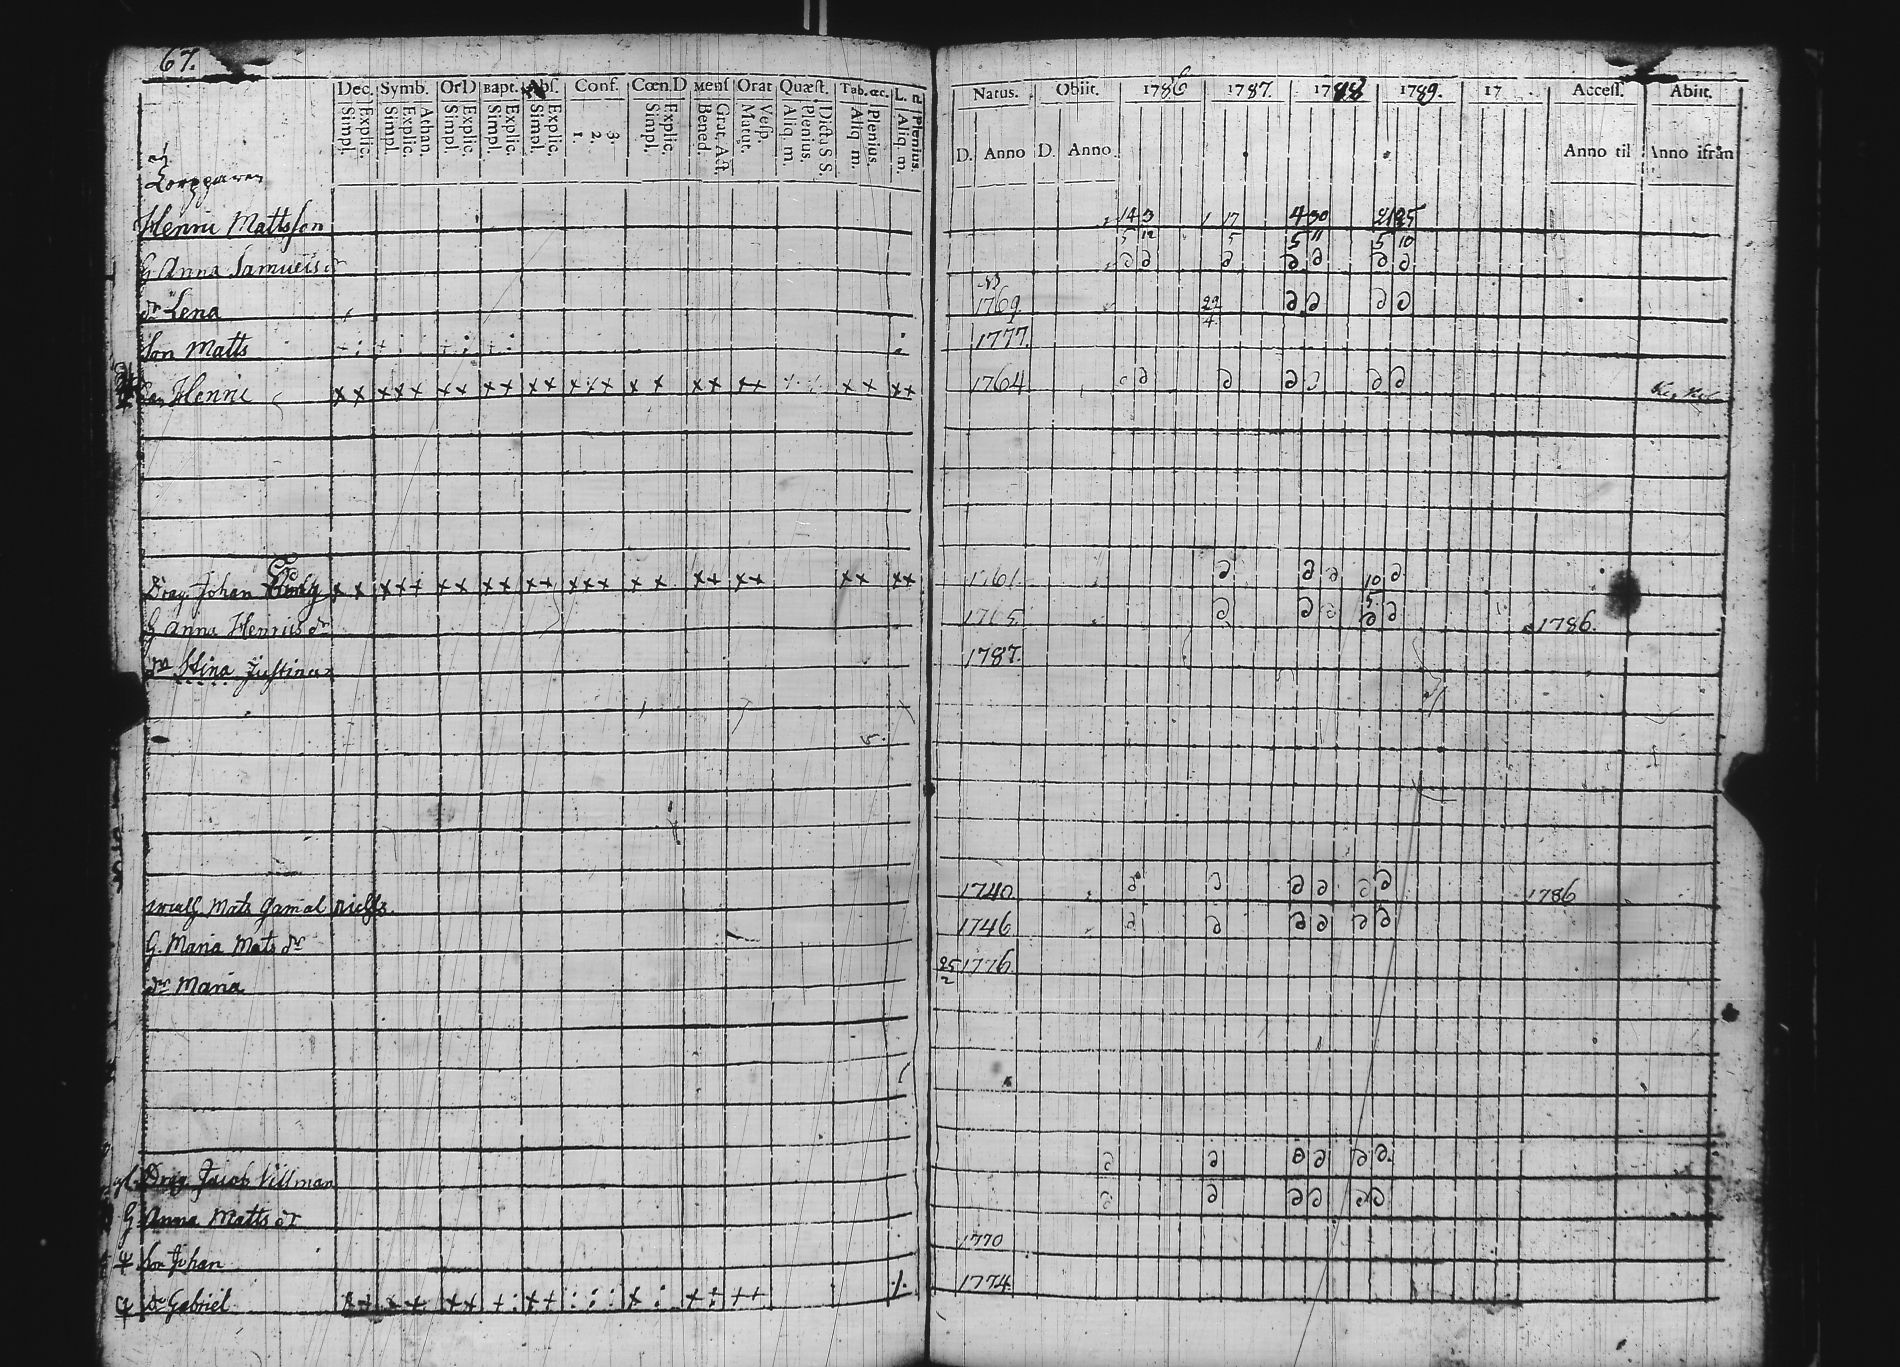 67.
Dec. Symb. OrD Bapt. Abs. Conf. Cœn.D Mens Orat Quæst. Tab. œc. L.
Explic. Simpl. Athan. Explic. Simpl. Explic. Simpl. Explic. Simpl. Explic. Simpl. 3. 2. 1. Explic. Simpl. Grat, Act. Bened. Vesp. Matut. Dicta S S. Plenius. Aliq. m. Plenius. Aliq m. Plenius. Aliq m.
Natus. Obiit. 1786 1787. 1788 1789. 17 Access. Abiit.
D. Anno D. Anno Anno til Anno ifrån
Henric Mattsson 14 3 17 4 30
G Anna Samuels dr 5 12 5 5 11 5 10
dr Lena 1769. 22 4
Son Matts 1777.
Son Henric 1764
Drag. Johan 1761. 10 5
G Anna Henrics dr 1765. 1786.
dr Stina Justina 1787.
Mats Gamal 1740. 1786
G. Maria Mats dr 1746
dr Maria 25 2 1776.
gl. Drag. Jacob Villman
G Anna Matts dr
Son Johan 1770
Do Gabriel 1774.